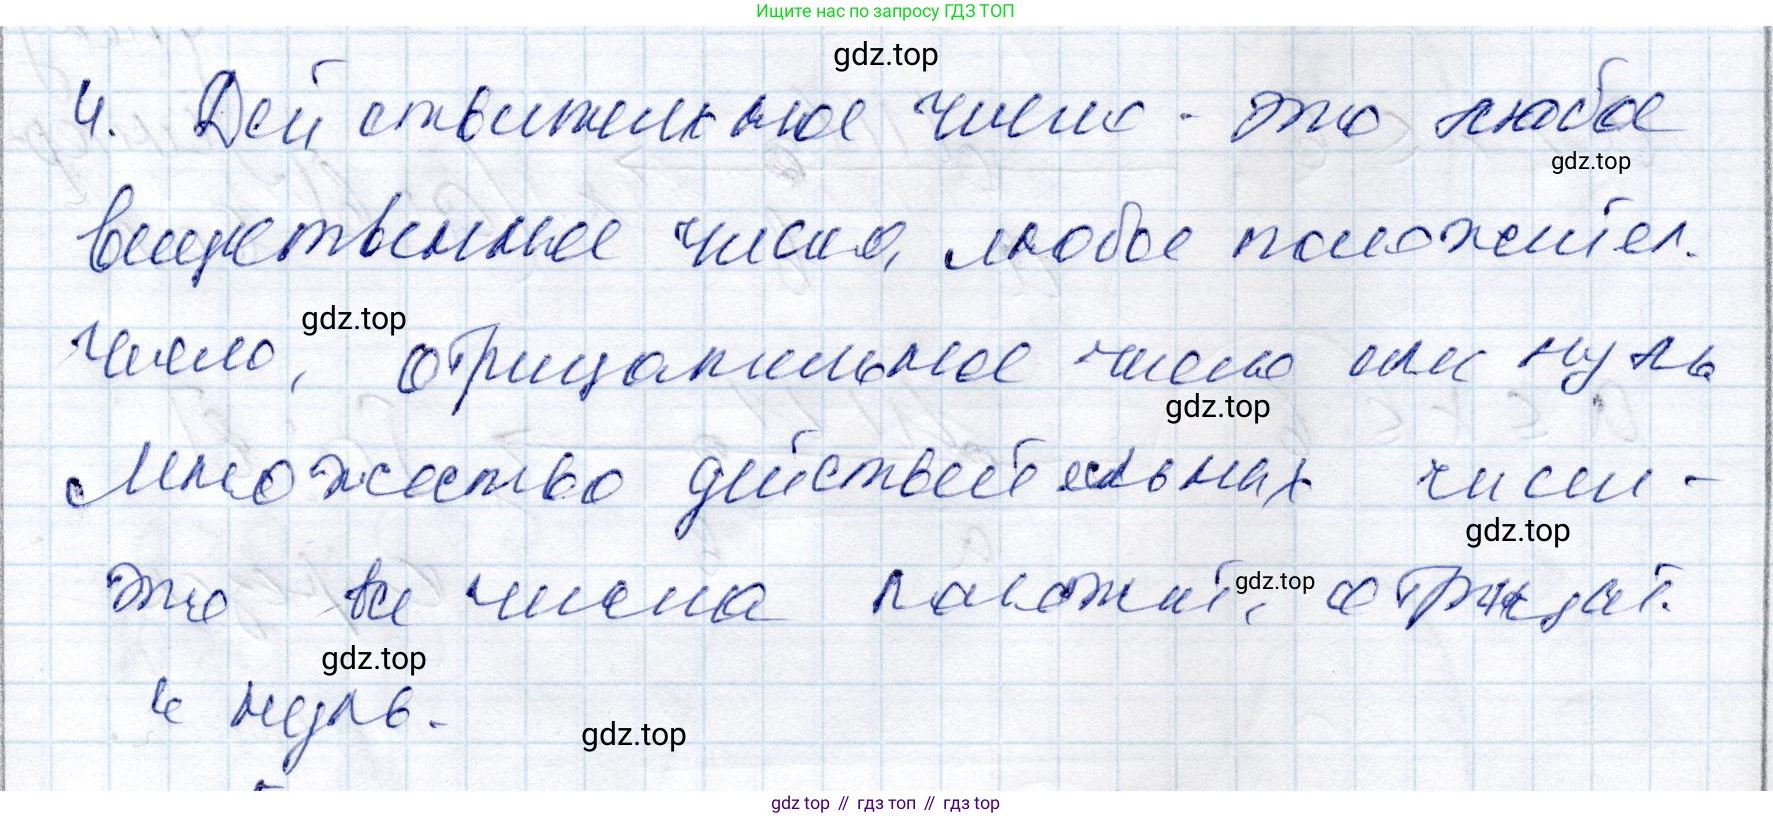 Ищите нас по запросу ГДЗ ТОП
gdz.top
4. Действительное число - это любое
gdz.top
вещественное число, любое положител.
gdz.top
число, отрицательное число или нуль
gdz.top
Множество действительных чисел -
gdz.top
это все числа положит, отрицат.
gdz.top
gdz.top
и нуль.
gdz.top
gdz top // гдз топ // гдз top